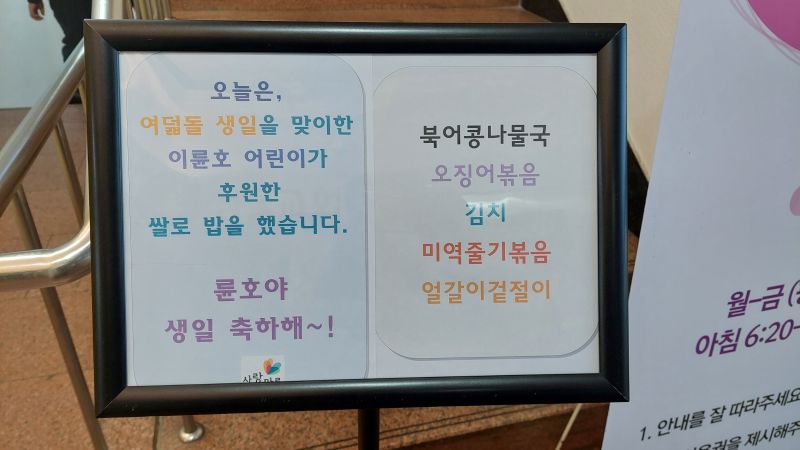 오늘은,
여덟돌 생일을 맞이한
이륜호 어린이가
후원한
쌀로 밥을 했습니다.
륜호야
생일 축하해~!
사랑
북어콩나물국
오징어볶음
김치
미역줄기볶음
얼갈이겉절이
월-금
아침 6:20-
1. 안내를 잘 따라주세요
제시해주